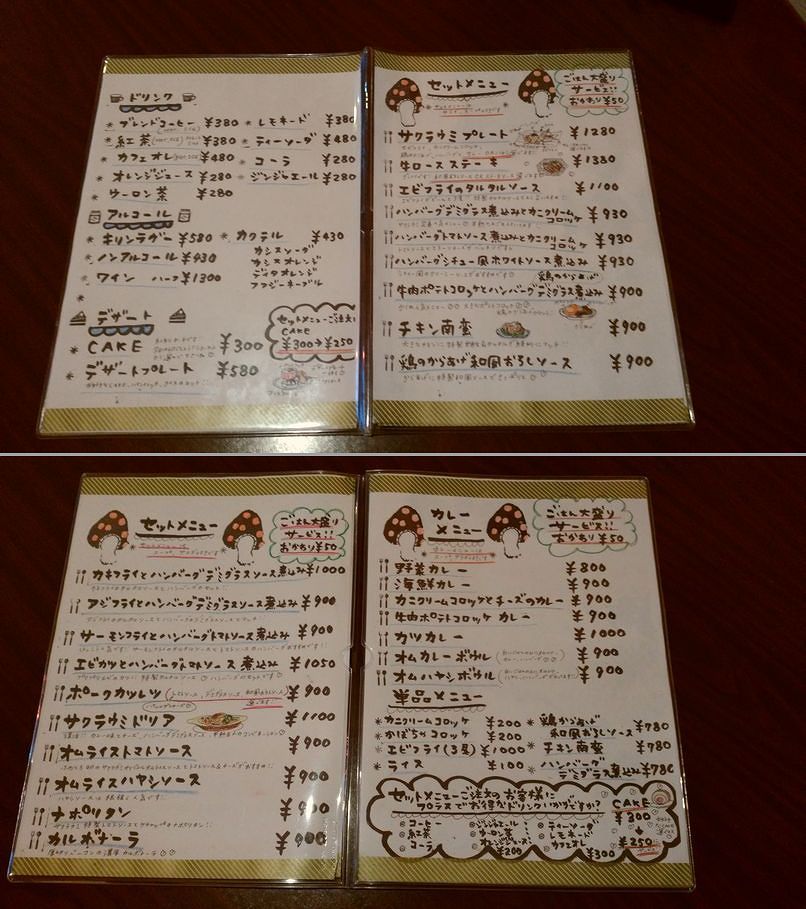 ドリンク
* ブレンドコーヒー ¥380 * レモネード ¥380
* 紅茶 ¥380 * ティーソーダ ¥480
* カフェオレ ¥480 * コーラ ¥280
* オレンジジュース ¥280 * ジンジャエール ¥280
* ウーロン茶 ¥280
アルコール
* キリンラガー ¥580 * カクテル ¥430
* ノンアルコール ¥430 カシスソーダ
カシスオレンジ
* ワイン ハーフ ¥1300 ディタオレンジ
ファジーネーブル
*
デザート
* CAKE ¥300
* デザートプレート ¥580
セットメニューご注文で
CAKE
¥300→¥250
セットメニュー
ごはん大盛り
サービス!!
おかわり¥50
サクラウミプレート ¥1280
牛ロースステーキ ¥1380
エビフライのタルタルソース ¥1100
ハンバーグデミグラス煮込みとカニクリームコロッケ ¥930
ハンバーグトマトソース煮込みとカニクリームコロッケ ¥930
ハンバーグシチュー風ホワイトソース煮込み ¥930
鶏のからあげ
牛肉ポテトコロッケとハンバーグデミグラス煮込み ¥900
チキン南蛮 ¥900
鶏のからあげ和風おろしソース ¥900
セットメニュー
ごはん大盛り
サービス!!
おかわり¥50
カキフライとハンバーグデミグラスソース煮込み ¥1000
アジフライとハンバーグデミグラスソース煮込み ¥900
サーモンフライとハンバーグトマトソース煮込み ¥900
エビカツとハンバーグトマトソース煮込み ¥1050
ポークカツレツ ¥900
サクラウミドリア ¥1100
オムライストマトソース ¥900
オムライスハヤシソース ¥900
ナポリタン ¥900
カルボナーラ ¥900
カレー
メニュー
ごはん大盛り
サービス!!
おかわり¥50
野菜カレー ¥800
海鮮カレー ¥900
カニクリームコロッケとチーズのカレー ¥900
牛肉ポテトコロッケ カレー ¥900
カツカレー ¥1000
オムカレーボウル ¥900
オムハヤシボウル ¥900
単品メニュー
* カニクリームコロッケ ¥200 * 鶏からあげ
* かぼちゃコロッケ ¥200 和風おろしソース ¥780
* エビフライ(3尾) ¥1000 * チキン南蛮 ¥780
* ライス ¥100 * ハンバーグ
デミグラス煮込み ¥780
セットメニューご注文のお客様に
プラスでお得なドリンクいかがですか?
コーヒー ジンジャエール ティーソーダ
紅茶 ウーロン茶 レモネード
コーラ オレンジジュース カフェオレ
¥200 ¥300
CAKE
¥300
↓
¥250